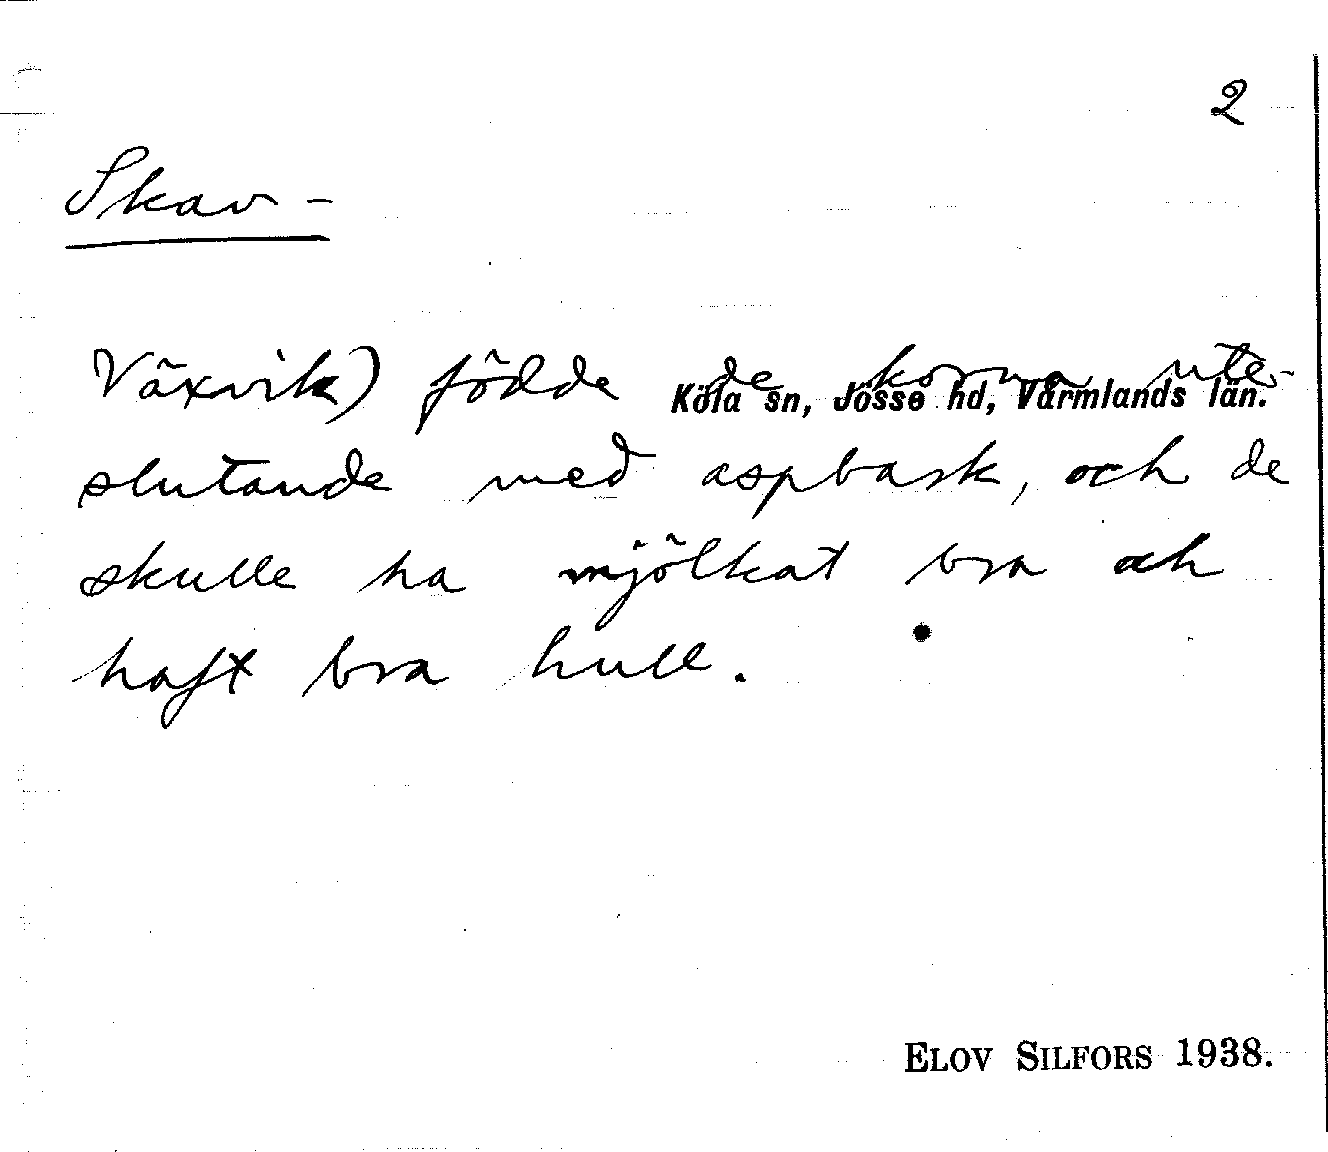 2
Skav-
Växvik) födde de korna ute-
Köla sn, Jösse hd, Värmlands län.
slutande med aspbark, och de
skulle ha mjölkat bra och
haft bra hull.
ELOV SILFORS 1938.